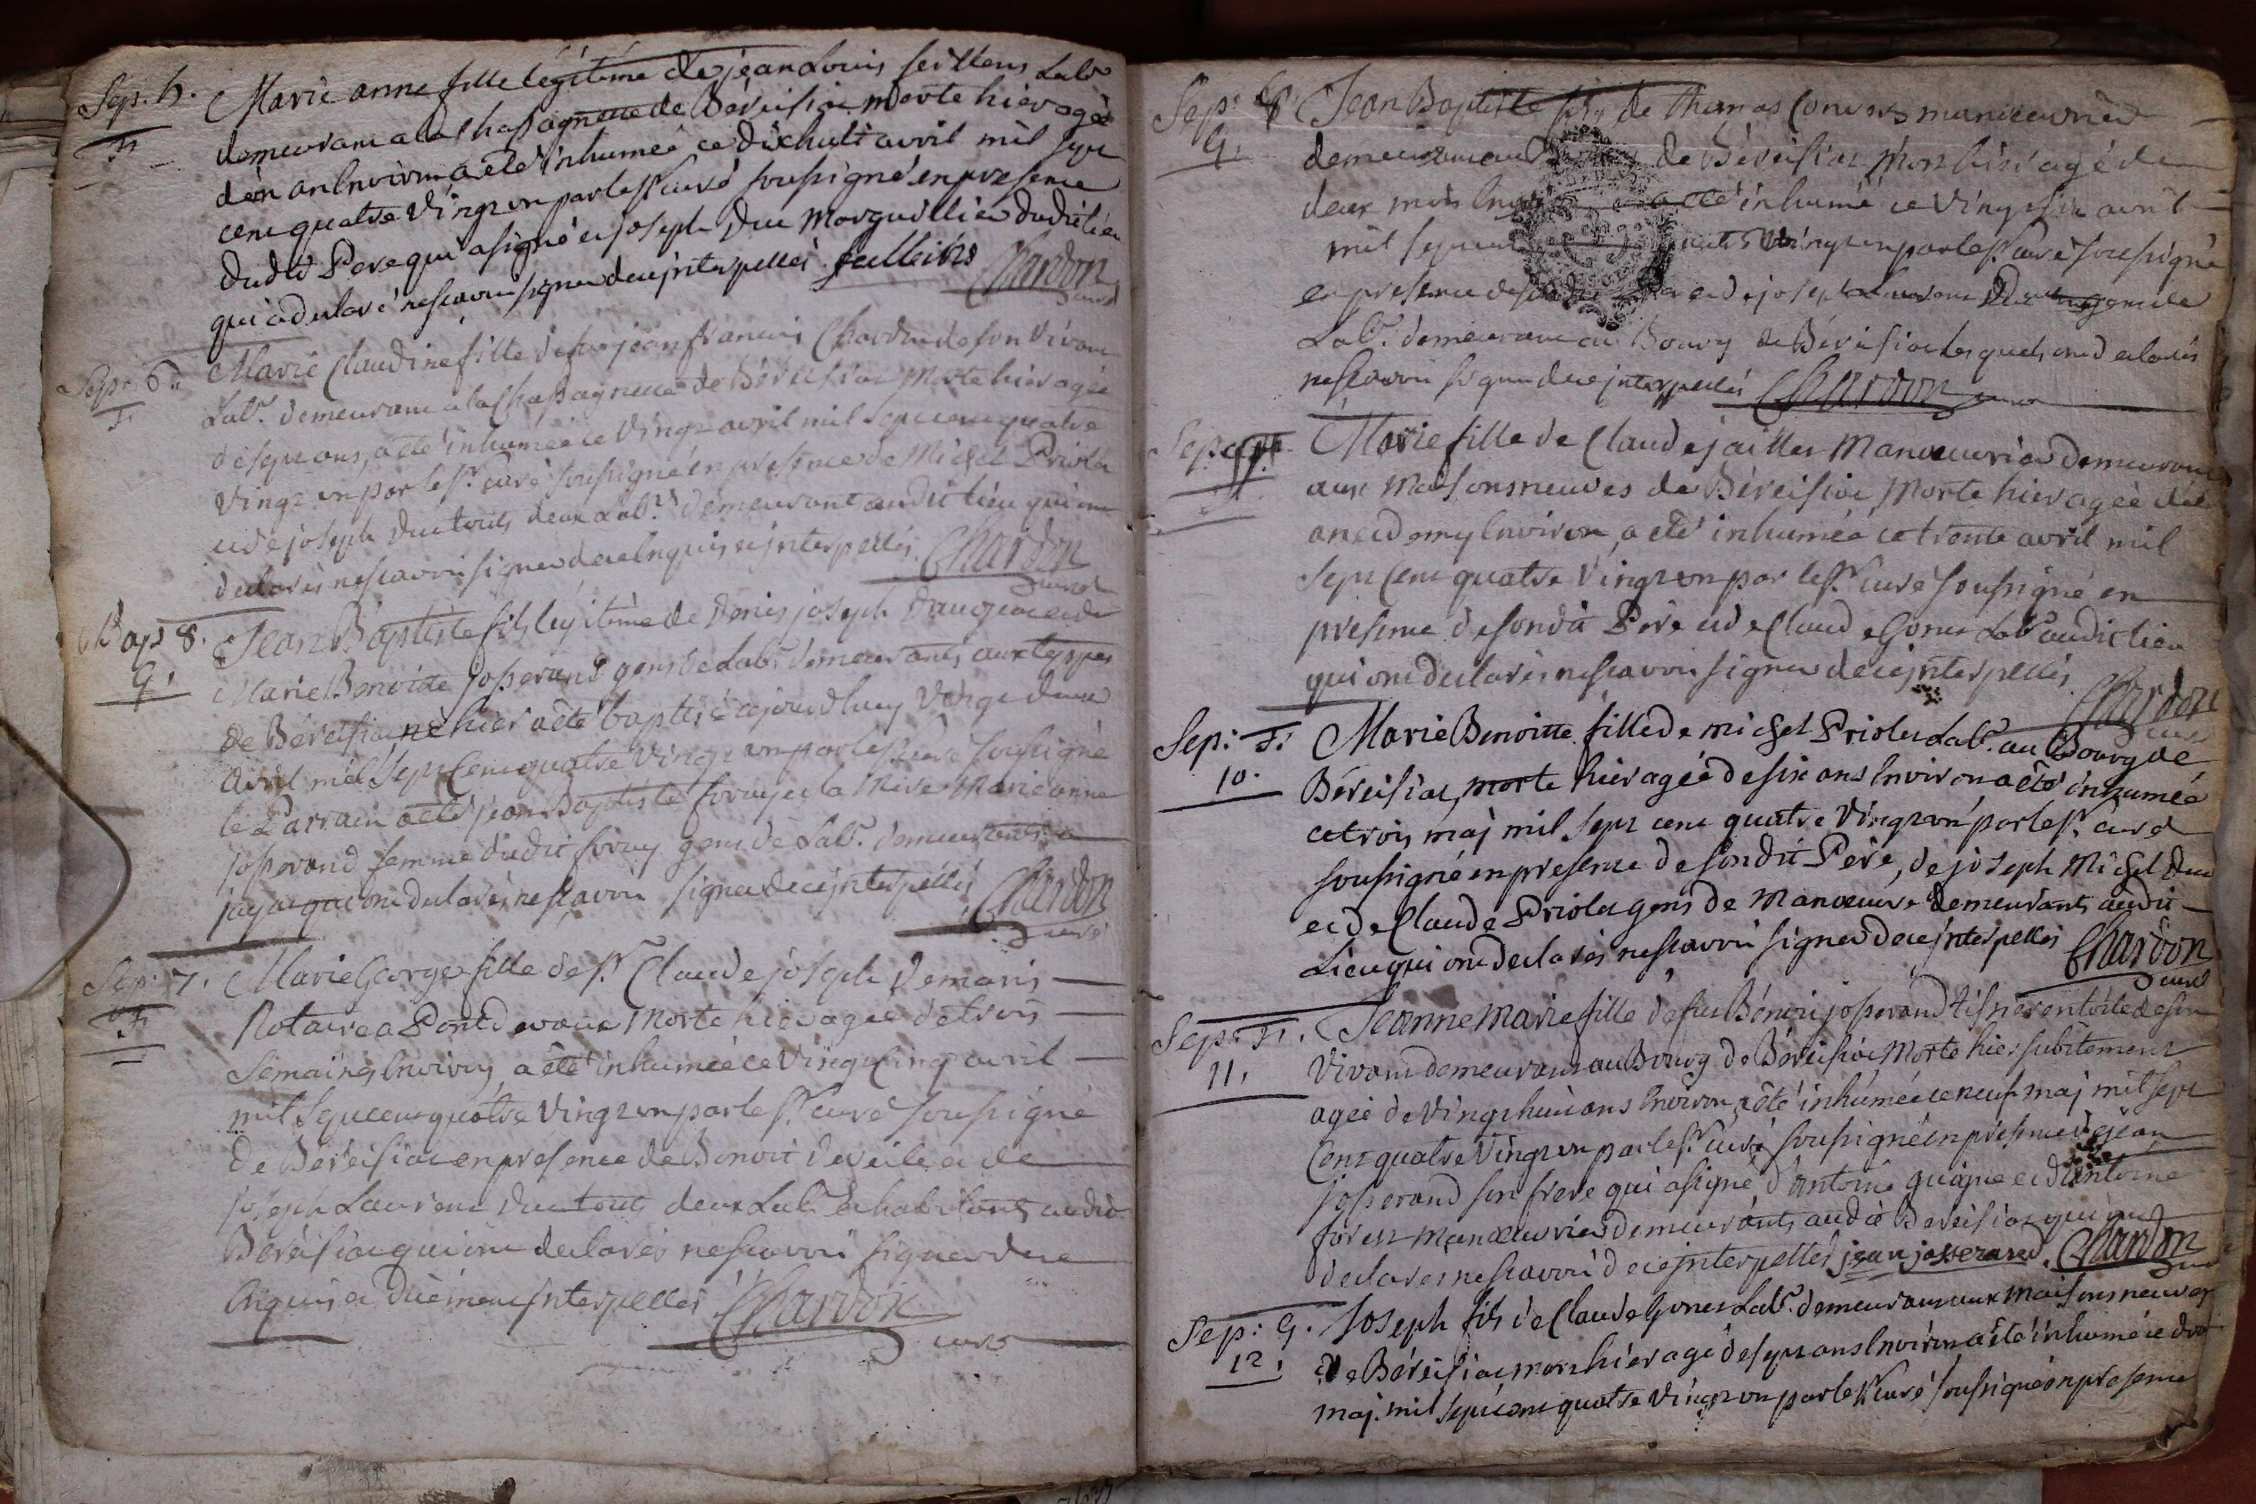 Sep. 5.
F
Marie anne fille légitime de jéan Louis feillens Labr
demeurant a la Chassagneue de Béreisiac morte hier agée
d'un an environ a été inhumée ce dixhuit avril mil sept
cent quatre vingt un par le sr curé soussigné en presence
dudit Pere qui a signé et joseph Duc Marguillier dudit lieu
qui a declaré ne scavoir signer de ce jnterpellés feillens Chardon
curé
Sep. 6.
F
Marie Claudine fille de feu jean françois Chardon de son vivant
Labr. demeurant a la Chassagneue de Béreisiac Morte hier agée
de sept ans, a été inhumée ce vingt avril mil sept cent quatre
vingt un par le sr curé soussigné en presence de Michel Priolet
et de joseph Duc touts deux Labr. demeurant audit lieu qui ont
declarés ne scavoir signer de ce enquis et jnterpellés Chardon
curé
Bap 8.
G.
Jean Baptiste fils légitime de Denis joseph et de
Marie Benoitte josserand gens de Labr demeurants aux
de Béreisiac né hier a été baptisé ce jourdhuy vingt deux
avril mil sept Cent quatre vingt un par le sr curé soussigné
le Parrain a été jean Baptiste et la Mere Marie anne
josserand femme dudit gens de Labr. demeurants a
qui ont declarés ne scavoir signer de ce jnterpellés Chardon
curé
Sep. 7.
F
Marie George fille de sr Claude joseph Demaris
Notaire a Pontdevaux Morte hier agée de trois
semaines environ, a été inhumée ce vingt cinq avril
mil sept cent quatre vingt un par le sr. curé soussigné
de Béreisiac en presence de Benoit et de
joseph Laurent Duc touts deux Labr. habitants audit
Béreisiac qui ont declarés ne scavoir signer de ce
enquis et duement jnterpellés Chardon
curé
Sep. 8
G.
Jean Baptiste fils de Thomas Convers manoeuvrier
demeurant au de Béreisiac Mort hier agé de
deux mois a été inhumé ce vingt six avril
mil sept cent quatre vingt un par le sr. curé soussigné
en presence de et de joseph Laurent Duc gens de
Labr. demeurant au Bourg de Béreisiac lesquels ont declarés
ne scavoir signer de ce jnterpellés Chardon curé
Sep. 9.
F
Marie fille de Claude jaillet Manoeuvrier demeurant
aux Maisons neuves de Béreisiac, Morte hier agée d'un
an et demy environ, a été inhumée ce trente avril mil
sept Cent quatre vingt un par le sr. curé soussigné en
presence de sondit Pere et de Claude Gonet Labr audit lieu
qui ont declarés ne scavoir signer de ce jnterpellés
Chardon
curé
Sep. F.
10.
Marie Benoitte fille de Michel Priolet Labr. au Bourg de
Béreisiac, morte hier agée de six ans environ a été inhumée
ce trois maj mil sept cent quatre vingt un par le sr. curé
soussigné en presence de sondit Pere, de joseph Michel Duc
et de Claude Priolet gens de manoeuvre demeurants audit
Lieu qui ont declarés ne scavoir signer de ce jnterpellés Chardon
curé
Sep. F.
11.
Jeanne Marie fille de feu Bénoit josserand tisnier en toile de son
vivant demeurant au Bourg de Béreisiac Morte hier subitement
agée de vingt huit ans environ, a été inhumée ce neuf maj mil sept
Cent quatre vingt un par le sr. curé soussigné en presence de jean
josserand son frere qui a signé d'antoine et d'antoine
forest manoeuvrier demeurants audit Béreisiac qui ont
declarés ne scavoir de ce jnterpellés jean josserand. Chardon
curé
Sep. G.
12.
Joseph fils de Claude Gonet Labr. demeurant aux maisons neuves
de Béreisiac, mort hier agé de sept ans environ a été inhumé ce
maj. mil sept cent quatre vingt un par le sr curé soussigné en presence